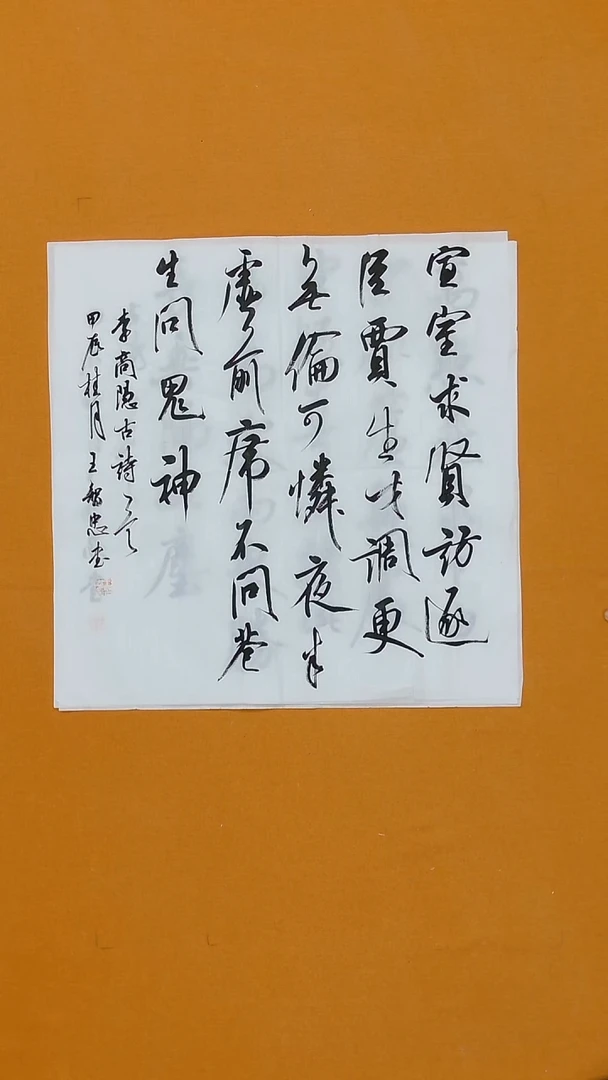 宣室求賢訪逐
臣賈生才調更
無倫可憐夜半
虛前席不問蒼
生問鬼神
李商隱古詩一首
甲辰桂月王智忠書